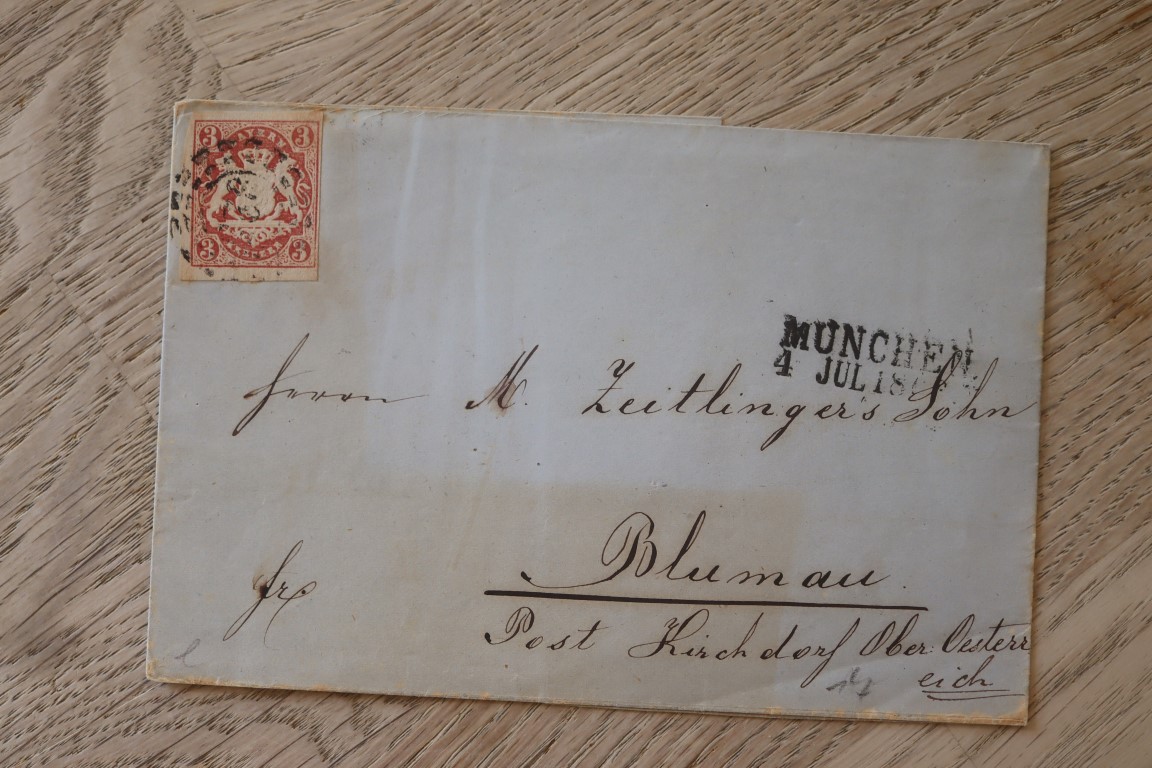 3 BAYERN 3
3 3
MÜNCHEN
4 JUL 18
Herrn M. Zeitlinger's Sohn
Blumau.
fr.
Post Kirchdorf Ober. Oesterr
eich.